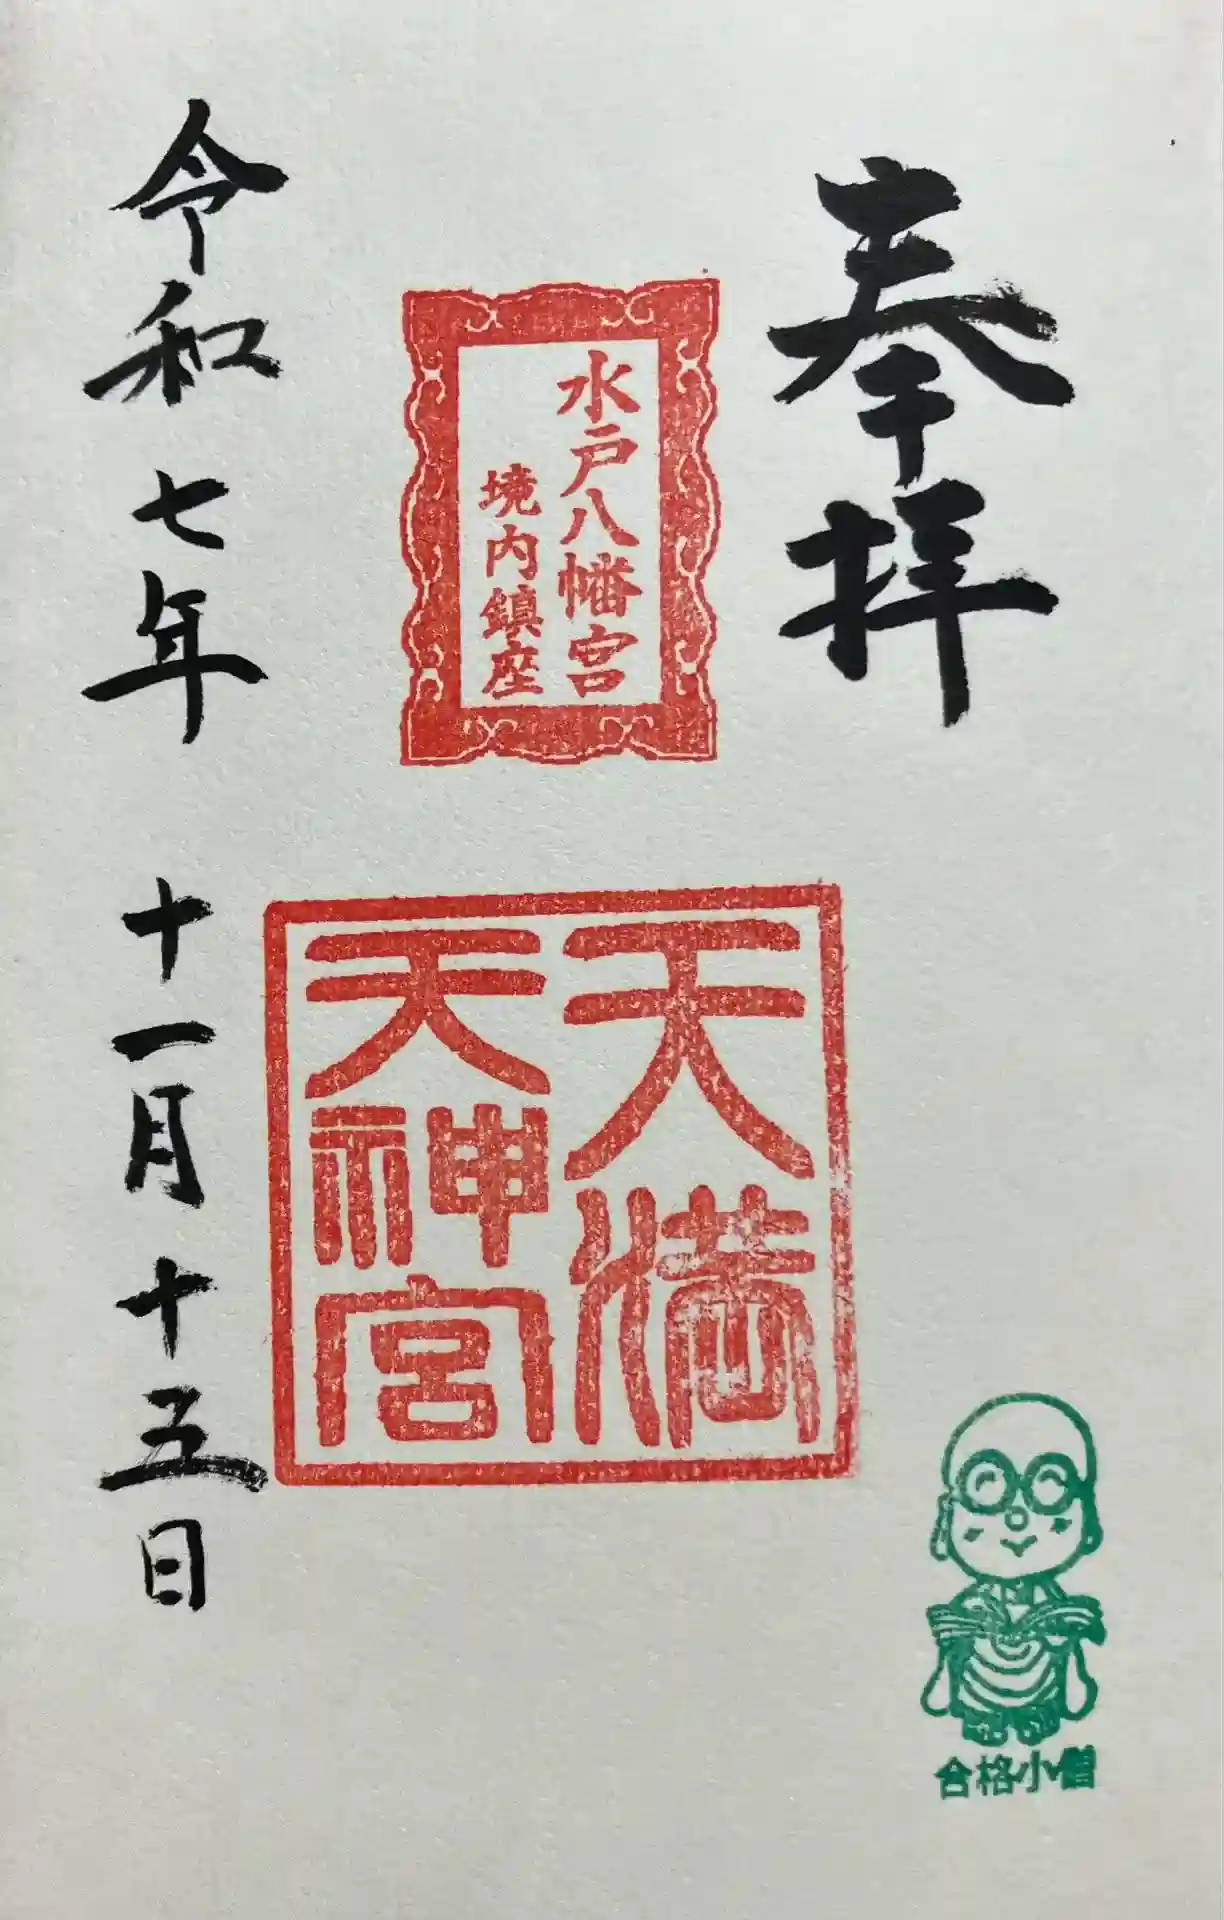 奉拝
水戸八幡宮
境内鎮座
天満
天神宮
令和七年 十一月十五日
合格小僧